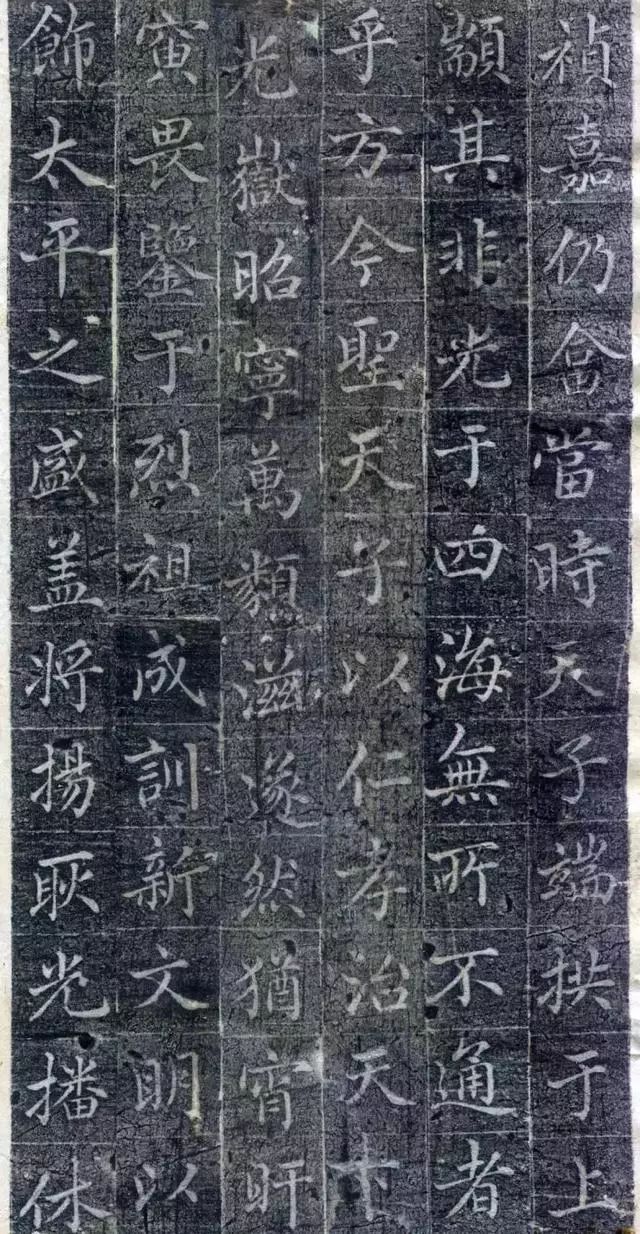 禎嘉仍畣當時天子端拱于上
顒其非光于四海無所不通者
乎方今聖天子以仁孝治天下
光嶽昭寧萬類滋遂然猶宵旰
寅畏鑒于烈祖成訓新文明以
飾太平之盛盖將揚耿光播休